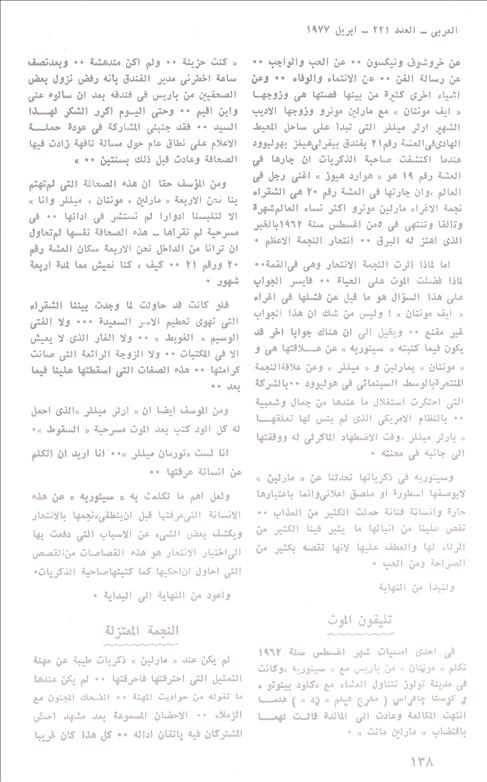 العربي ـ العدد ٢٢١ ـ ابريل ١٩٧٧
عن خروشوف ونيكسون ٠٠ عن الحب والواجب ٠٠
عن رسالة الفن ٠٠ عن الانتماء والوفاء ٠٠ وعن
اشياء اخرى كثيرة من بينها قصتها هي وزوجها
« ايف مونتان » مع مارلين مونرو وزوجها الاديب
الشهير ارثر ميللر التي تبدأ على ساحل المحيط
الهادي في العشة رقم ٢١ بفندق بيفرلي هيلز بهوليوود
عندما اكتشفت صاحبة الذكريات ان جارها في
العشة رقم ١٩ هو « هوارد هيوز » اغنى رجل في
العالم ، وان جارتها في العشة رقم ٢٠ هي الشقراء
نجمة الاغراء مارلين مونرو اكثر نساء العالم شهرة
وتألقا وتنتهي في ٥ من اغسطس سنة ١٩٦٢ بالخبر
الذي اهتز له البرق ٠٠ انتحار النجمة الاعظم ٠
اما لماذا آثرت النجمة الانتحار وهي في القمة ٠٠
لماذا فضلت الموت على الحياة ٠٠ فايسر الجواب
على هذا السؤال هو ما قيل عن فشلها في اغراء
« ايف مونتان » ! وليس من شك ان هذا الجواب
غير مقنع ٠٠ ويخيل الي ان هناك جوابا اخر قد
يكون فيما كتبته « سينوريه » عن علاقتها هي و
« مونتان » بمارلين و « ميللر » وعن علاقة النجمة
المنتحرة بالوسط السينمائي في هوليوود ٠٠ بالشركة
التي احتكرت استغلال ما عندها من جمال وشعبية
٠٠ بالنظام الامريكي الذي لم ينس لها تعلقها
« بارثر ميللر » وقت الاضطهاد الماكرثي له ووقفتها
الى جانبه في محنته ٠
وسينوريه في ذكرياتها تحدثنا عن « مارلين »
لا بوصفها اسطورة او ملصق اعلاني وانما باعتبارها
جارة وانسانة فنانة حملت الكثير من العذاب ٠٠
تقص علينا من انبائها ما يثير فينا الكثير من
الرثاء لها والعطف عليها لانها تقصه بكثير من
الصراحة ومن الحب ٠
ولنبدأ من النهاية
تليفون الموت
في احدى امسيات شهر اغسطس سنة ١٩٦٢
تكلم « مونتان » من باريس مع « سينوريه » وكانت
في مدينة تولوز تتناول العشاء مع « كلود بينوتو »
و كوستا جافراس ( مخرج فيلم « زد » ) فلما
انتهت المكالمة وعادت الى المائدة قالت لهما
باقتضاب « مارلين ماتت » ٠
« كنت حزينة ٠٠ ولم اكن مندهشة ٠٠ وبعد نصف
ساعة اخطرني مدير الفندق بانه رفض نزول بعض
الصحفيين من باريس في فندقه بعد ان سألوه عني
واين اقيم ٠٠ وحتى اليوم اكرر الشكر لهذا
السيد ٠٠ فقد جنبني المشاركة في عودة حملة
الاعلام على نطاق عام حول مسألة تافهة زادت فيها
الصحافة وعادت قبل ذلك بسنتين ٠٠ »
ومن المؤسف حقا ان هذه الصحافة التي لم تهتم
بنا نحن الاربعة « مارلين ، مونتان ، ميللر وانا »
الا لتلبسنا ادوارا لم نستشر في ادائها ٠٠ في
مسرحية لم نقرأها ـ هذه الصحافة نفسها لم تحاول
ان ترانا من الداخل نحن الاربعة سكان العشة رقم
٢٠ ورقم ٢١ ٠٠ كيف ، كنا نعيش معا لمدة اربعة
شهور ٠
فلو كانت قد حاولت لما وجدت بيننا الشقراء
التي تهوى تحطيم الاسر السعيدة ٠٠٠ ولا الفتى
الوسيم « الغويط » ٠٠ ولا الفار الذي لا يعيش
الا في المكتبات ٠٠ ولا الزوجة الرائعة التي صانت
كرامتها ٠٠ هذه الصفات التي اسقطتها علينا فيما
بعد ٠٠
ومن الموسف ايضا ان « ارثر ميللر » الذي احمل
له كل الود كتب بعد الموت مسرحية « السقوط » ٠
انا لست « نورمان ميللر » ٠٠ انا اريد ان اتكلم
عن انسانة عرفتها ٠٠
ولعل اهم ما تكلمت به « سينوريه » عن هذه
الانسانة التي عرفتها قبل ان ينطفىء نجمها بالانتحار
ويكشف بعض الشىء عن الاسباب التي دفعت بها
الى اختيار الانتحار هو هذه القصاصات من القصص
التي احاول ان احكيها كما كتبتها صاحبة الذكريات ٠
واعود من النهاية الى البداية ٠
النجمة المعتزلة
لم يكن عند « مارلين » ذكريات طيبة عن مهنة
التمثيل التي احترفتها فاحرقتها ٠٠ لم يكن عندها
ما تقوله من حواديت المهنة ٠٠ الضحك المجنون مع
الزملاء ٠٠ الاحضان المسموعة بعد مشهد احس
المشتركان فيه باتقان ادائه ٠٠ كل هذا كان غريبا
١٣٨